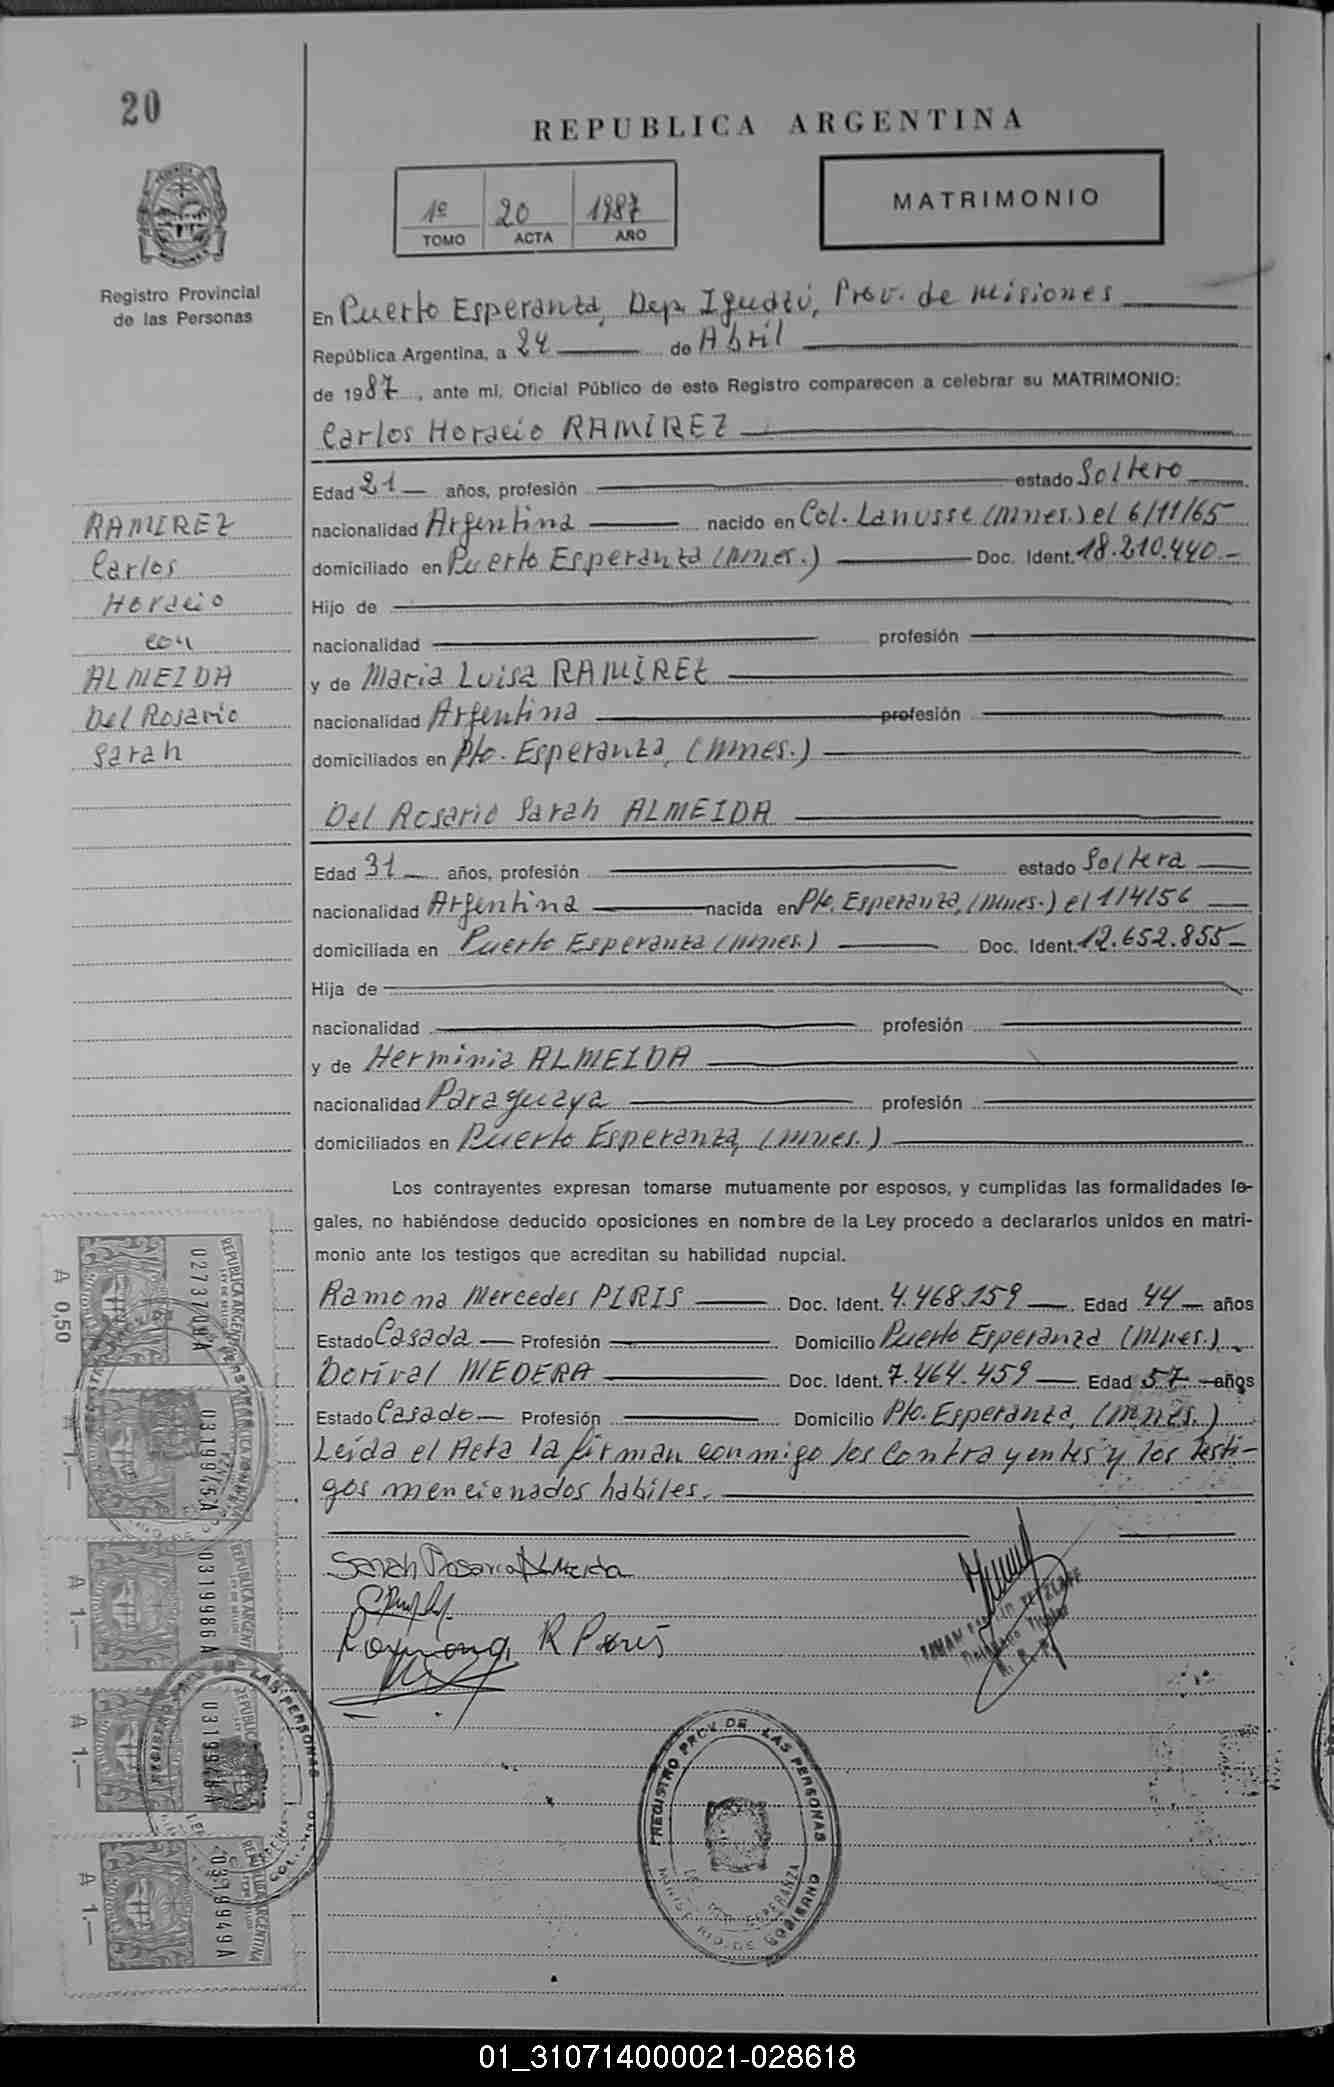 20
REPUBLICA ARGENTINA
1º 20 1987
TOMO ACTA AÑO
MATRIMONIO
Registro Provincial
de las Personas
En Puerto Esperanza, Dep. Iguazú, Prov. de Misiones
República Argentina, a 24 de Abril
de 1987, ante mi, Oficial Público de este Registro comparecen a celebrar su MATRIMONIO:
Carlos Horacio RAMIREZ
Edad 21 años, profesión estado Soltero
nacionalidad Argentina nacido en Col. Lanusse (Mnes.) el 6/11/65
domiciliado en Puerto Esperanza (Mnes.) Doc. Ident. 18.210.440.-
Hijo de
nacionalidad profesión
y de Maria Luisa RAMIREZ
nacionalidad Argentina profesión
domiciliados en Pto. Esperanza, (Mnes.)
RAMIREZ
Carlos
Horacio
con
ALMEIDA
Del Rosario
Sarah
Del Rosario Sarah ALMEIDA
Edad 31 años, profesión estado Soltera
nacionalidad Argentina nacida en Pto. Esperanza, (Mnes.) el 1/4/56
domiciliada en Puerto Esperanza (Mnes.) Doc. Ident. 12.652.855-
Hija de
nacionalidad profesión
y de Herminia ALMEIDA
nacionalidad Paraguaya profesión
domiciliados en Puerto Esperanza, (Mnes.)
Los contrayentes expresan tomarse mutuamente por esposos, y cumplidas las formalidades le-
gales, no habiéndose deducido oposiciones en nombre de la Ley procedo a declararlos unidos en matri-
monio ante los testigos que acreditan su habilidad nupcial.
Ramona Mercedes PIRIS Doc. Ident. 4.468.159 Edad 44 años
Estado Casada Profesión Domicilio Puerto Esperanza (Mnes.)
Dorival MEDERA Doc. Ident. 7.464.459 Edad 57 años
Estado Casado Profesión Domicilio Pto. Esperanza, (Mnes.)
Leída el Acta la firman conmigo los contrayentes y los testi-
gos mencionados habiles.
Sarah Rosario Almeida
Ramona R Piris
A 0,50
REPUBLICA ARGENTINA
A 1.—
0319945A
A 1.—
0319986A
A 1.—
A 1.—
0319949A
REGISTRO PROV. DE LAS PERSONAS
MINISTERIO DE GOBIERNO
ESPERANZA
01_310714000021-028618